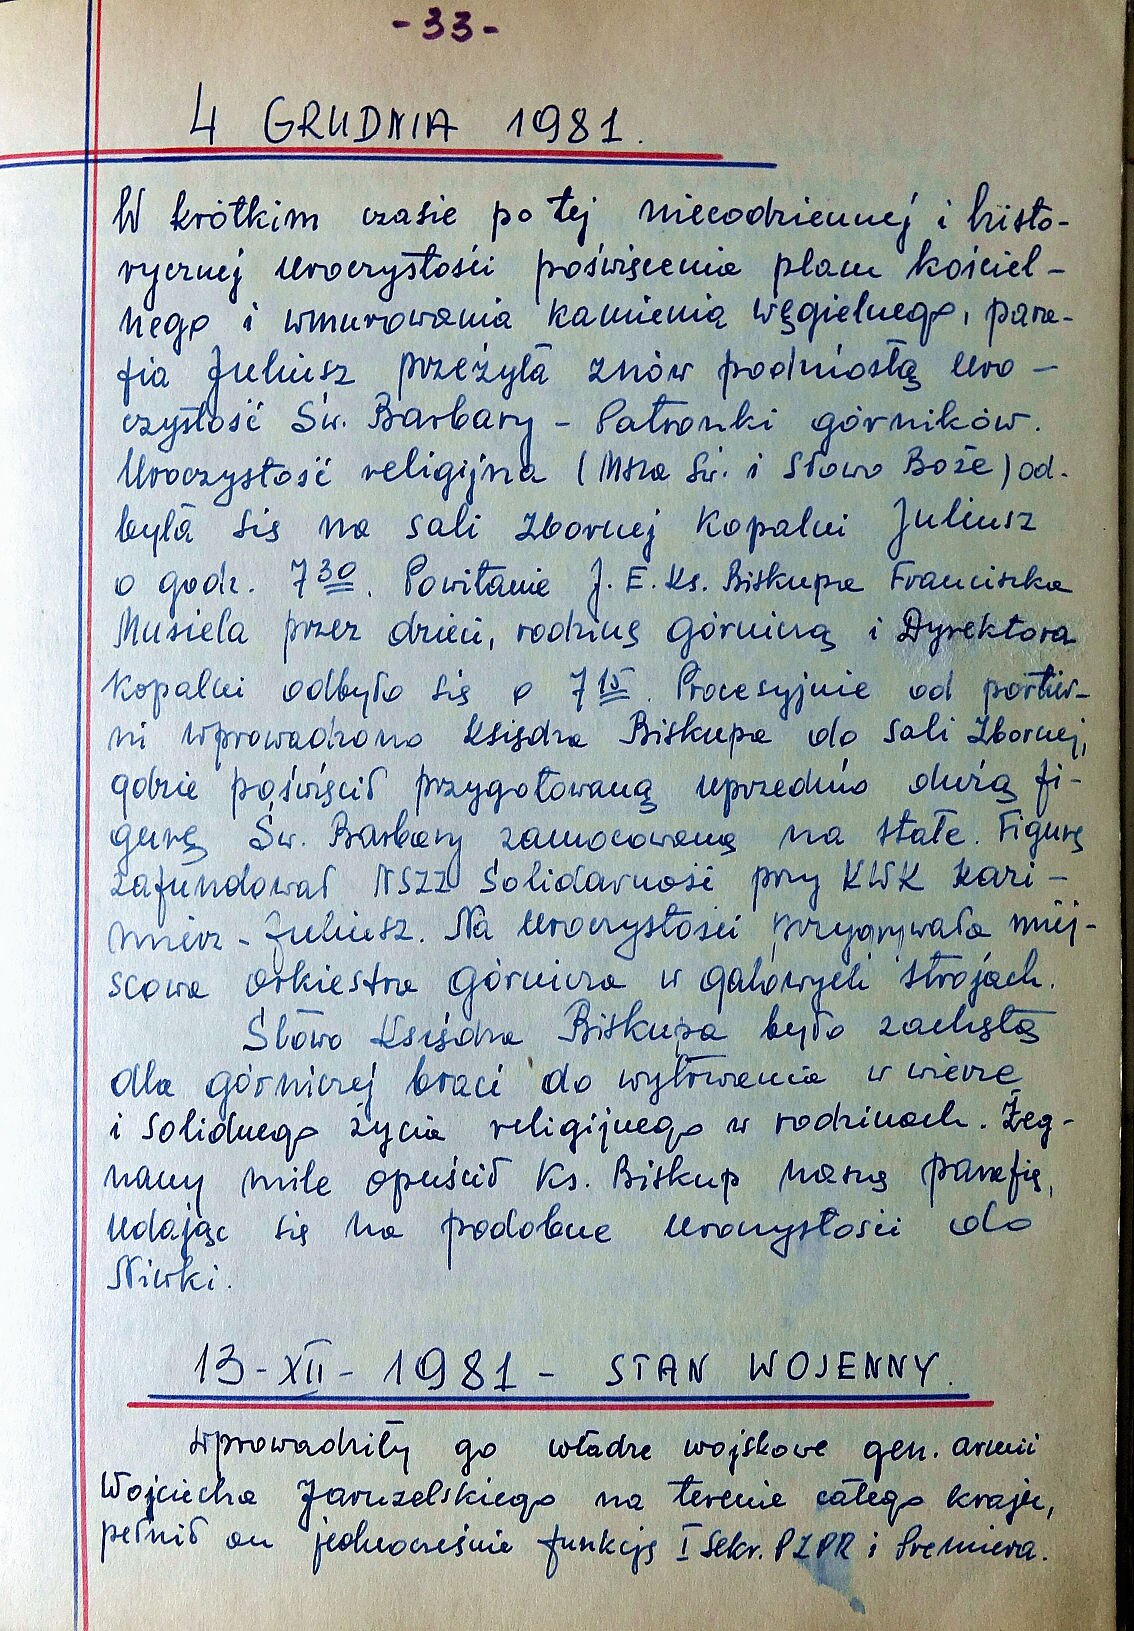 -33-
4 GRUDNIA 1981.
W krótkim czasie po tej niecodziennej i histo-
rycznej uroczystości poświęcenia placu kościel-
nego i wmurowania kamienia węgielnego, para-
fia Juliusz przeżyła znów podniosłą uro-
czystość Św. Barbary - Patronki górników.
Uroczystość religijna (Msza Św. i Słowo Boże) od-
była się na sali zbornej Kopalni Juliusz
o godz. 7 30. Powitanie J. E. Ks. Biskupa Franciszka
Musiela przez dzieci, rodzinę górniczą i Dyrektora
Kopalni odbyło się o 7 15. Procesyjnie od portier-
ni wprowadzono Księdza Biskupa do sali Zbornej,
gdzie poświęcił przygotowaną uprzednio dużą fi-
gurę Św. Barbary zamocowaną na stałe. Figurę
zafundował NSZZ Solidarność przy KWK Kazi-
mierz - Juliusz. Na uroczystości przygrywała miej-
scowa orkiestra górnicza w galowych strojach.
Słowo Księdza Biskupa było zachętą
dla górniczej braci do wytrwania w wierze
i solidnego życia religijnego w rodzinach. Żeg-
nany mile opuścił Ks. Biskup naszą parafię,
udając się na podobne uroczystości do
Niwki.
13-XII-1981 - STAN WOJENNY.
Wprowadziły go władze wojskowe gen. armii
Wojciecha Jaruzelskiego na terenie całego kraju,
pełnił on jednocześnie funkcję I Sekr. PZPR i Premiera.